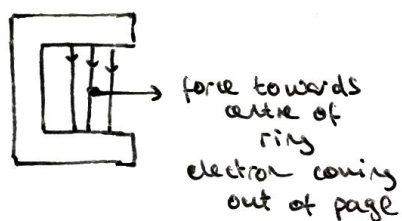 force towards
centre of
ring
electron coming
out of page